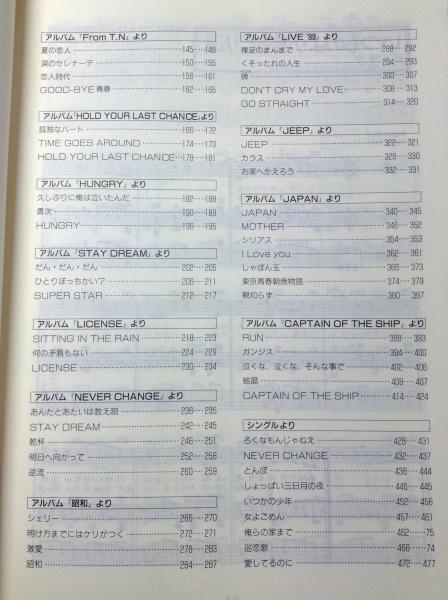 アルバム『From T.N』より
夏の恋人 145 149
涙のセレナーデ 150 155
恋人時代 156 161
GOOD-BYE青春 162 165
アルバム『HOLD YOUR LAST CHANCE』より
孤独なハート 166 172
TIME GOES AROUND 174 173
HOLD YOUR LAST CHANCE 178 181
アルバム『HUNGRY』より
久しぶりに俺は泣いたんだ 182 188
勇次 190 189
HUNGRY 196 195
アルバム『STAY DREAM』より
だん・だん・だん 202 205
ひとりぼっちかい? 206 211
SUPER STAR 212 217
アルバム『LICENSE』より
SITTING IN THE RAIN 218 223
何の矛盾もない 224 229
LICENSE 230 234
アルバム『NEVER CHANGE』より
あんたとあたいは数え唄 236 235
STAY DREAM 242 245
乾杯 246 251
明日へ向かって 252 258
逆流 260 259
アルバム『昭和』より
シェリー 266 270
明け方までにはケリがつく 272 271
激愛 278 283
昭和 284 287
アルバム『LIVE '89』より
裸足のまんまで 288 292
くそったれの人生 294 293
碑 300 307
DON'T CRY MY LOVE 308 313
GO STRAIGHT 314 320
アルバム『JEEP』より
JEEP 322 321
カラス 326 330
お家へかえろう 332 331
アルバム『JAPAN』より
JAPAN 340 345
MOTHER 346 352
シリアス 354 353
I Love you 362 361
しゃぼん玉 368 373
東京青春朝焼物語 374 379
親知らず 380 387
アルバム『CAPTAIN OF THE SHIP』より
RUN 388 393
ガンジス 394 400
泣くな、泣くな、そんな事で 402 406
結晶 408 407
CAPTAIN OF THE SHIP 414 424
シングルより
ろくなもんじゃねえ 428 431
NEVER CHANGE 432 437
とんぼ 438 444
しょっぱい三日月の夜 446 445
いつかの少年 452 456
女よごめん 457 461
俺らの家まで 462 75
巡恋歌 466 74
愛してるのに 472 477